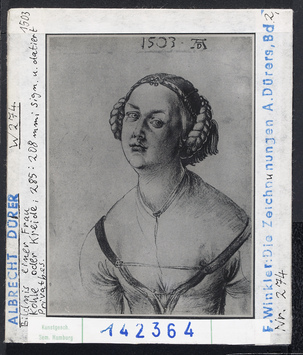 1503 AD
ALBRECHT DÜRER W 274
Bildnis einer Frau 1503
Kohle oder Kreide; 285:208 mm; sign. u. datiert
Privatbes.
F. Winkler: Die Zeichnungen A. Dürers, Bd 2,
Nr. 274
Kunstgesch.
Sem. Hamburg
142364